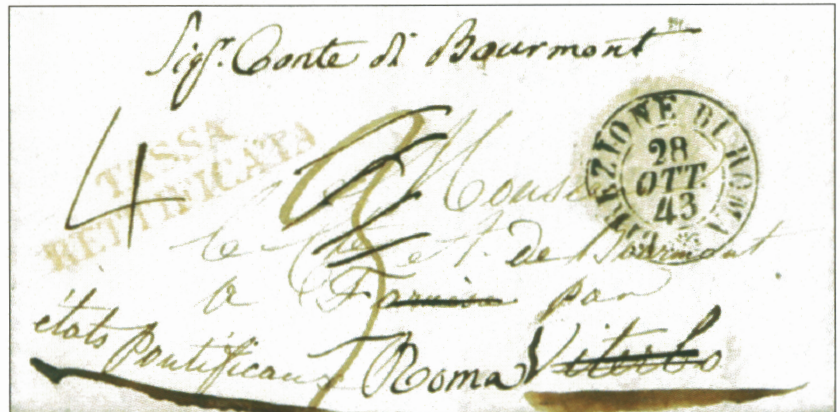 Sigr. Conte di Bourmont
4
TASSA
RETTIFICATA
DIREZIONE DI ROMA
28
OTT.
43
Monsieur
le Cte A. de Bourmont
a Farnèse par
états pontificaux Roma Viterbo